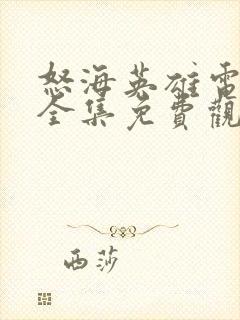 怒海英雄電
全集免費觀
西莎